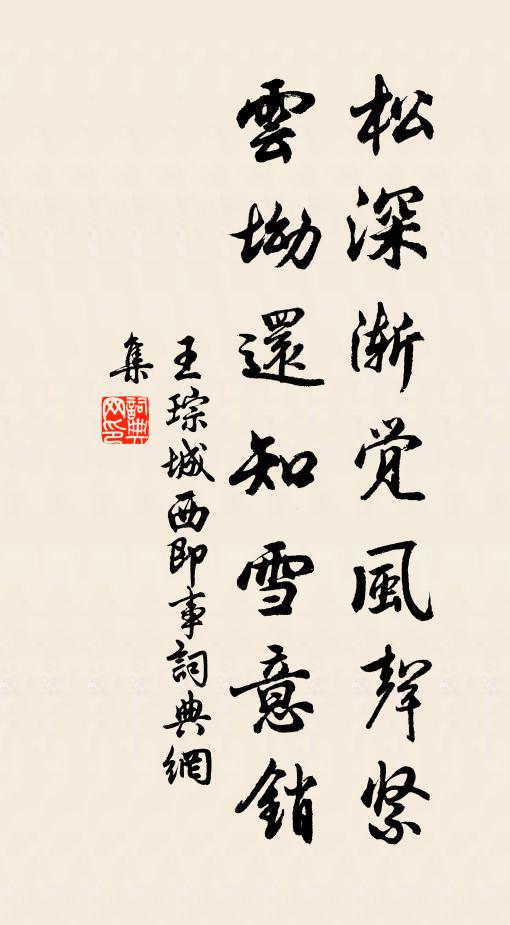 松深渐觉風聲紧
雲坳還知雪意銷
王琮城西即事詞典網
集
詞典网印